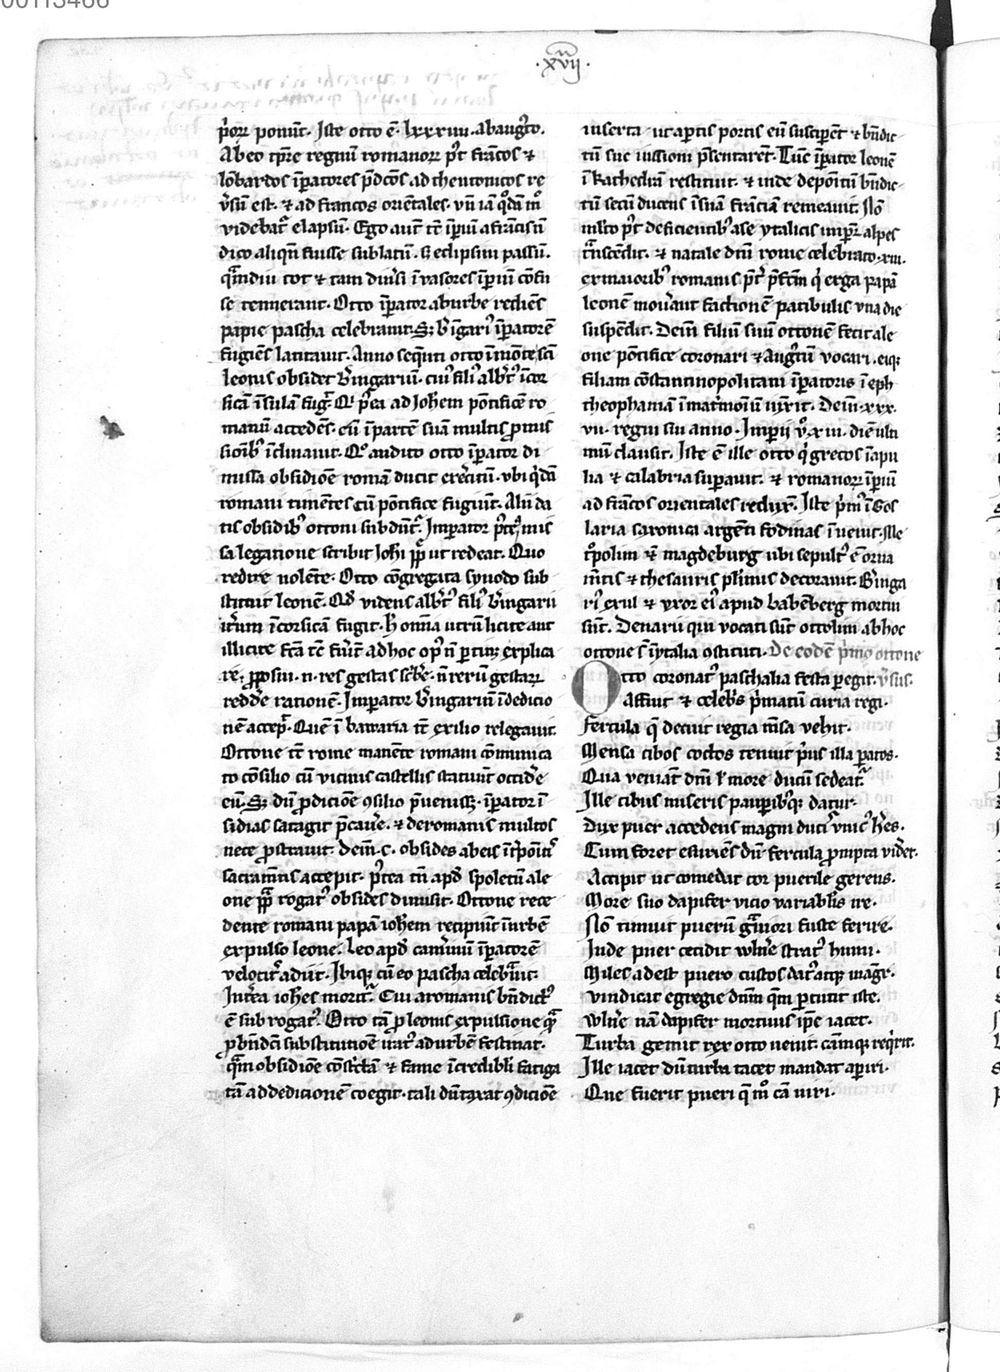 00113466
.xvij.
p̄orꝝ ponūt. Iste otto ē. lxxxiiii. ab augꝰto.
Ab eo tp̄re regnū romanorꝝ pꝰt frācos ⁊
lōbardos īpatores p̄dcōs ad theutonicos re
v̓sū est. ⁊ ad francos oriētales. vn̄ iā qͦdā mͦ
videbat᷑ elapsū. Ego aut̄ tc̄ īpiū a frācis nō
dico aliqn̄ fuisse sublatū. sꝫ eclipsim passū.
qͣmdiu tot ⁊ tam diūsi īvasores īpiū cōfu
se tenuerant. Otto īpator ab urbe rediēs
papie pascha celebrauit. Sꝫ b̓īgariꝰ īpatorē
fugiēs latitauit. Anno seqn̄ti otto ī mōte sc̄i
leonis obsidet b̓ingariū. cuiꝰ filiꝰ albt̓ꝰ ī cor
sicā īsulā fug̓. Qͥ pͦea ad Ioh̄em pōtificē ro
manū accedēs. eū ī partē suā multis ꝓmis
sioībꝰ īclinauit. Qͦ audito otto īpator di
missa obsidiōe romā ducit exc̓itū. vbi qͥdā
romani timētes cū pōtifice fugiūt. Alij da
tis obsidibꝰ ottoni subdūt᷑. Imperator pꝰtea mis
sa legatione scribit Ioh̄i pp̄ ut redeat. Quo
redire nolēte. Otto cōgregata synodo sub
stituit leonē. Qd̄ videns albt̓ꝰ filiꝰ b̓ingarii
it̓um ī corsicā fugit. H̓ omīa utrū licite aut
illicite fc̄a tc̄ fūīt ad hoc opꝰ n̄ ꝑtinꝫ explica
re. ꝓposui. n. res gestas sc̓bꝫe. n̄ rerū gestarꝝ
redde̓ rationē. Imperator b̓ingariū ī dedicio
nē accep̓. Quē ī bawaria tc̄ exilio relegauit.
Ottone tc̄ rome manēte romani cōmunica
to cōsilio cū vicinis castellis statuūt occide̓
eū. Sꝫ dū ꝓdiciōe ꝯsilio p̄uenissꝫ. īpator ī
sidias satagit p̄caue̓. ⁊ de romanis multos
nece ꝓstrauit. deīn. c. obsides ab eis
sacramētis accepit. pꝰtea tn̄ apd̄ spoletū ale
one pp̄ rogatꝰ obsides dimisit. Ottone rece
dente romani papā ioh̄em recipiūt ī urbē
expulso leone. Leo apd̄ camͥnū īpatorē
velocit̓ adiit. Ibiqꝫ cū eo pascha celebͣuit.
Int̓ea ioh̄es morit᷑. Cui a romanis bn̄dictꝰ
ē subrogatꝰ. Otto tā ꝓ leonis expulsione qͣ̄
ꝓ bn̄dc̄i substitutiōe iratꝰ ad urbē festinat.
qͣm obsidiōe cōst̓ctā ⁊ fame īcredibli fatiga
tā ad dedicionē coegit. tali dūtaxat ꝯdiciōe
inserta. ut aptis portis eū susciꝑet ⁊ bn̄dic
tū sue iussioni p̄sentaret. Tūc īpator leonē
ī kathedrā restituit. ⁊ inde depositū bn̄dic
tū secū ducens ī suā frāciā remeauit. Nō
mlto pꝰt deficientibꝰ a se ytalicis impr̄ alpes
tͣnscēdit. ⁊ natale dn̄i rome celebrato. xiii.
ex maioribꝰ romanis pͥꝰt p̄fc̄m qͥ erga papā
leonē moūant factionē patibulis vna die
suspēdit. Deīn filiū suū ottonē fecit ale
one pōtifice coronari ⁊ augꝰtū vocari. eiqꝫ
filiam cōstantinopolitani īpatoris ī eph
theophaniā ī mat̓moīū iūxit. Deīn. xxx.
vii. regni sui anno. Imperii v̓. xiii. diē ulti
mū clausit. Iste ē ille otto qͥ grecos ī apu
lia ⁊ calabria suꝑauit. ⁊ romanorꝝ īpiū
ad frācos orientales reduxͭ. Iste pͥmꝰ ī Gos
laria saxonica argēti fodinas īuenit. Ille
t̓polim ē magdeburg ubi sepultꝰ ē orna
mētis ⁊ thesauris plͥmis decorauit. B̓inga
riꝰ exul ⁊ vxor eiꝰ apud babēberg mortui
sūt. Denarii qui vocati sūt ottolini ab hoc
ottone s̄ ī ytalia ostituti. De eodē pͥmo ottone
Otto coronatꝰ paschalia festa ꝑegit. v̓sus.
Affuit ⁊ celeb̓s pͥmatū curia regi.
Fercula q̄ decuit regia mēsa vehit.
Mensa cibos coctos tenuit pͥus illa ꝑatos.
Qua veniat dn̄i l̓ more ducū sedeat᷑.
Ille cibus miseris pauꝑibꝰqꝫ datur.
Dux puer accedens magni ducͥ vnicꝰ h̓es.
Cum foret esuriēs dū fercula ꝓmpta vid̓et.
Accipit ut comedat cor puerile gerens.
More suo dapifer vicio variabl̓is ire.
Nō timuit puerū gͣuiori fuste ferire.
Inde puer cecidit wlne̓ stratꝰ humi.
Miles adest puero custos datꝰ atqꝫ magr̄.
Vindicat egregie dn̄m qm̄ ꝑcutit iste.
Wlne̓ nā dapifer mortuus ip̄e iacet.
Turba gemit rex otto uenit. cām qꝫ reqͥrit.
Ille iacet dū turba tacet mandat aꝑiri.
Que fuerit pueri q̄ mͦ cā uiri.